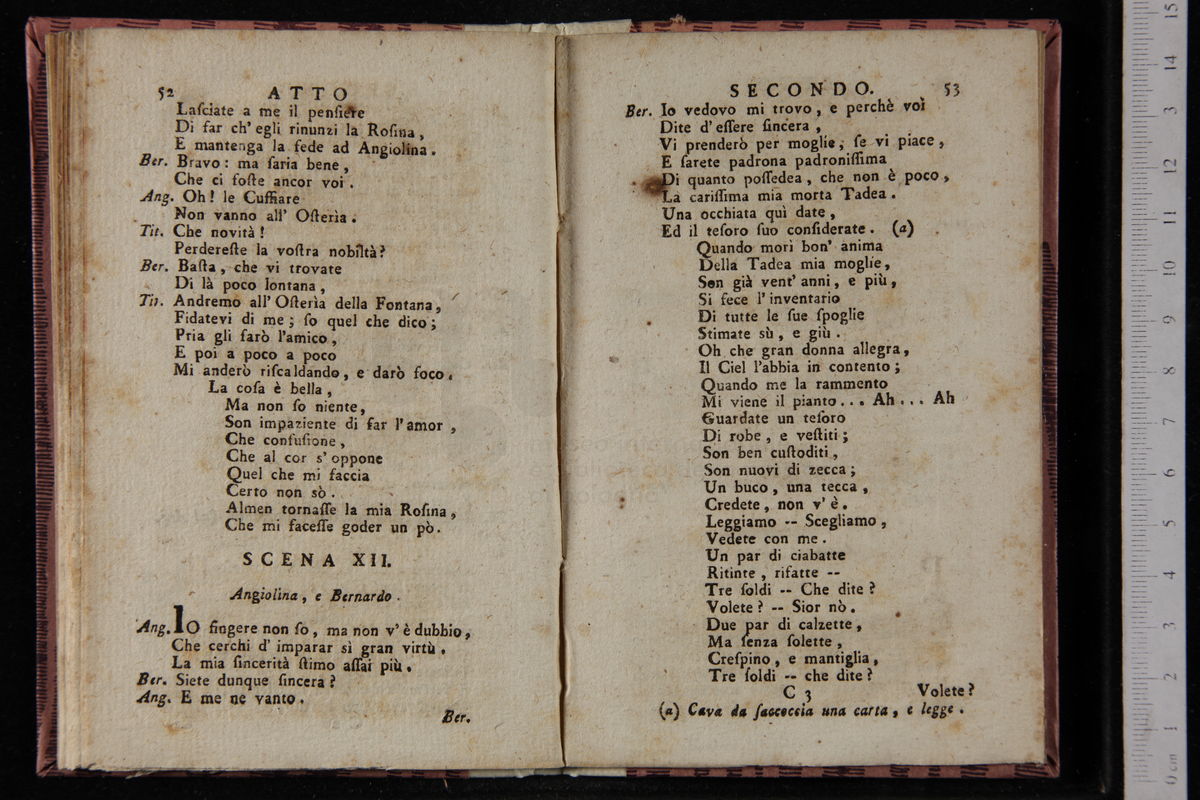 52 ATTO
Laſciate a me il penſiere
Di far ch' egli rinunzi la Roſina,
E mantenga la fede ad Angiolina.
Ber. Bravo: ma ſaria bene,
Che ci foſte ancor voi.
Ang. Oh! le Cuffiare
Non vanno all' Oſteria.
Tit. Che novità!
Perdereſte la voſtra nobiltà?
Ber. Baſta, che vi trovate
Di là poco lontana,
Tit. Andremo all' Oſterìa della Fontana,
Fidatevi di me; ſo quel che dico;
Pria gli farò l'amico,
E poi a poco a poco
Mi anderò riſcaldando, e darò foco.
La coſa è bella,
Ma non ſo niente,
Son impaziente di far l'amor,
Che confuſione,
Che al cor s' oppone
Quel che mi faccia
Certo non sò.
Almen tornaſſe la mia Roſina,
Che mi faceſſe goder un pò.
SCENA XII.
Angiolina, e Bernardo.
Ang. IO fingere non ſo, ma non v' è dubbio,
Che cerchi d' imparar sì gran virtù.
La mia ſincerità ſtimo aſſai più.
Ber. Siete dunque ſincera?
Ang. E me ne vanto.
Ber.
SECONDO. 53
Ber. Io vedovo mi trovo, e perchè voi
Dite d' eſſere ſincera,
Vi prenderò per moglie, ſe vi piace,
E ſarete padrona padroniſſima
Di quanto poſſedea, che non è poco,
La cariſſima mia morta Tadea.
Una occhiata quì date,
Ed il teſoro ſuo conſiderate. (a)
Quando morì bon' anima
Della Tadea mia moglie,
Son già vent' anni, e più,
Si fece l' inventario
Di tutte le ſue ſpoglie
Stimate sù, e giù.
Oh che gran donna allegra,
Il Ciel l'abbia in contento;
Quando me la rammento
Mi viene il pianto... Ah... Ah
Guardate un teſoro
Di robe, e veſtiti;
Son ben cuſtoditi,
Son nuovi di zecca;
Un buco, una tecca,
Credete, non v' è.
Leggiamo -- Scegliamo,
Vedete con me.
Un par di ciabatte
Ritinte, rifatte --
Tre ſoldi -- Che dite?
Volete? -- Sior nò.
Due par di calzette,
Ma ſenza ſolette,
Creſpino, e mantiglia,
Tre ſoldi -- che dite?
C 3 Volete?
(a) Cava da ſaccoccia una carta, e legge.